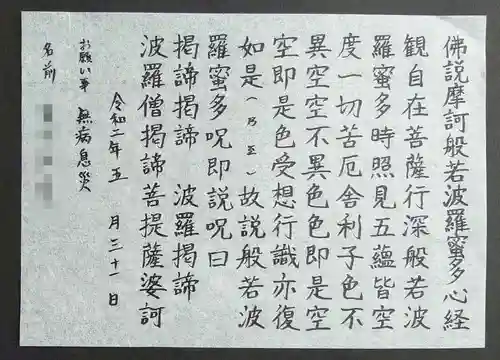 佛説摩訶般若波羅蜜多心経
観自在菩薩行深般若波
羅蜜多時照見五蘊皆空
度一切苦厄舎利子色不
異空空不異色色即是空
空即是色受想行識亦復
如是（乃至）故説般若波
羅蜜多呪即説呪曰
掲諦掲諦 波羅掲諦
波羅僧掲諦菩提薩婆訶
令和二年五月三十一日
お願い事 無病息災
名前